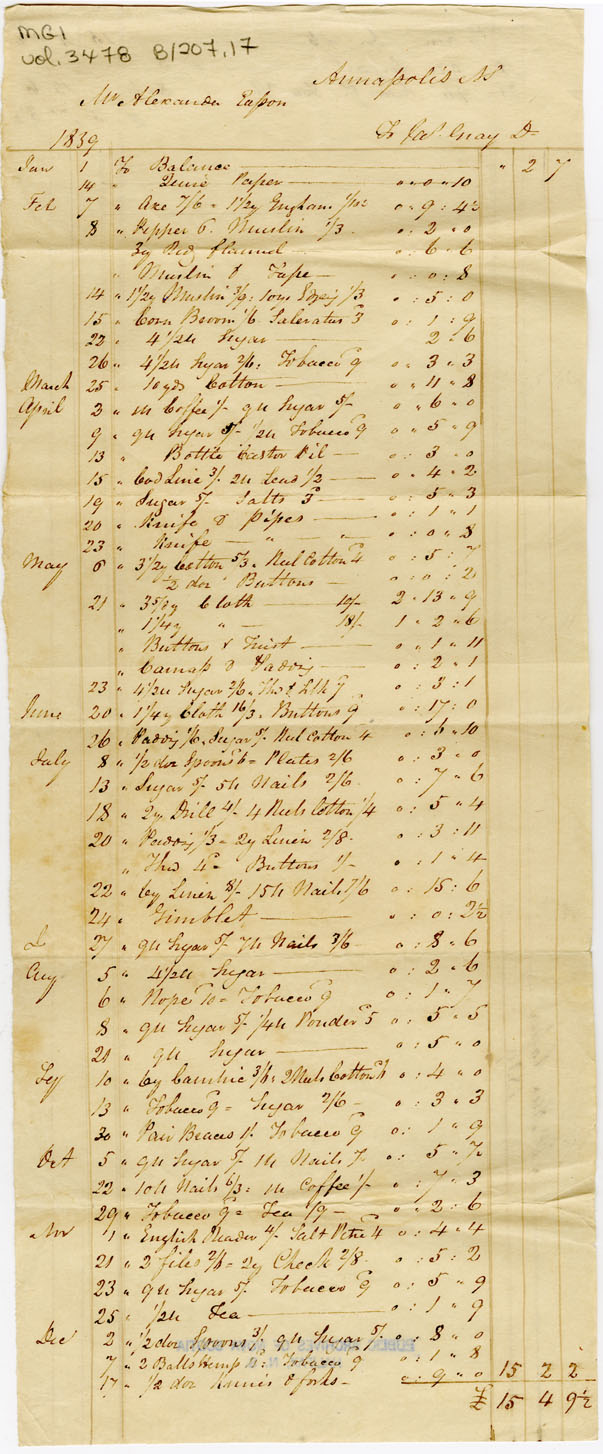 MG1
vol. 3478 B/207.17
Annapolis NS
Mr Alexander Easson
1839 To Jas. Gray Dr
Jan 1 To Balance " 2 7
14 " Quire Paper " " 0 " 10
Feb 7 " Axe 7/6 = 1 1/2 y Gingham 1/10 1/2 0 " 9 : 4 1/2
8 " Pepper 6. Muslin 1/3 0 : 2 " 0
3y Red flannel 0 : 6 : 6
" Muslin & Tape 0 : 0 : 8
14 " 1 1/2 y Muslin 3/9 : 10 1/3 0 : 5 : 0
15 " Corn Broom 1/6 Saleratus 3d 0 : 1 : 9
22 " 4 1/2 lb Sugar 2 : 6
26 " 4 1/2 lb Sugar 2/6 : Tobacco 9 0 " 3 " 3
March 25 " 10 yds Cotton 0 " 11 " 8
April 2 " 1 lb Coffee 1/- 9 lb Sugar 5/- 0 " 6 " 0
9 " 9 lb Sugar 5/- 1/2 lb Tobacco 9 0 " 5 " 9
13 " Bottle Castor Oil 0 : 3 " 0
15 " Cod Line 3/. 2 lb Lead 1/2 0 " 4 " 2
19 " Sugar 5/- Salts 3d 0 : 5 " 3
20 " Knife & Pipes 0 : 1 " 1
23 " Knife " " 0 : 0 " 8
May 6 " 3 1/2 y Cotton 5/3 " Reel Cotton 4 0 : 5 : 7
1/2 doz Buttons 0 : 0 : 2
21 " 3 5/8 y Cloth 10/- 2 " 13 " 9
" 1 1/4 y " 18/- 1 " 2 " 6
" Buttons & Twist 0 " 1 " 11
" Canvass & Padding 0 : 2 " 1
23 " 4 1/2 lb Sugar 2/6 " Thd & 7 0 : 3 : 1
June 20 " 1 1/4 y Cloth 16/3 " Buttons 9 0 : 17 : 0
26 " Padding 1/6 " Sugar 5/- Reel Cotton 4 0 : 6 " 10
July 8 " 1/2 doz Spoons 6 = Plates 2/6 0 : 3 " 0
13 " Sugar 5/- 5 lb Nails 2/6 0 : 7 " 6
18 " 2y Drill 4/- 4 Reels Cotton 1/4 0 : 5 " 4
20 " Padding 1/3 = 2y Linen 2/8 0 : 3 : 11
" Thd 4d = Buttons 1/- 0 : 1 " 4
22 " 6y Linen 8/- 15 lb Nails 7/6 0 : 15 : 6
24 " Gimblet " : 0 : 2 1/2
27 " 9 lb Sugar 5/- 7 lb Nails 3/6 0 : 8 " 6
Aug 5 " 4 1/2 lb Sugar 0 : 2 " 6
6 " Rope 10 = Tobacco 9 0 : 1 " 7
8 " 9 lb Sugar 5/- 1/4 lb Powder 5 0 : 5 " 5
21 " 9 lb Sugar 0 : 5 " 0
Sep 10 " 6y Cambric 3/6 : 2 Reels Cotton 6 0 : 4 " 0
13 " Tobacco 9 = Sugar 2/6 0 : 3 " 3
30 " Pair Braces 1/- Tobacco 9 0 : 1 " 9
Oct 5 " 9 lb Sugar 5/- 1 lb Nails 7 0 : 5 " 7
22 " 10 lb Nails 6/3 : 1 lb Coffee 1/- 0 : 7 " 3
29 " Tobacco 9 = Tea 1/9 0 " 2 : 6
Nov 1 " English Reader 4/- Salt Petre 4 0 : 4 " 4
21 " 2 files 2/6 = 2y Check 2/8 0 : 5 : 2
23 " 9 lb Sugar 5/- Tobacco 9 0 : 5 " 9
25 " 1/2 lb Tea 0 : 1 " 9
Dec 2 " 1/2 doz Spoons 3/- 9 lb Sugar 5/- 0 : 8 " 0
7 " 2 Balls Hemp 11 : Tobacco 9 0 : 1 " 8
17 " 1/2 doz Knives & forks 0 : 9 " 0 15 2 2
£ 15 4 9 1/2